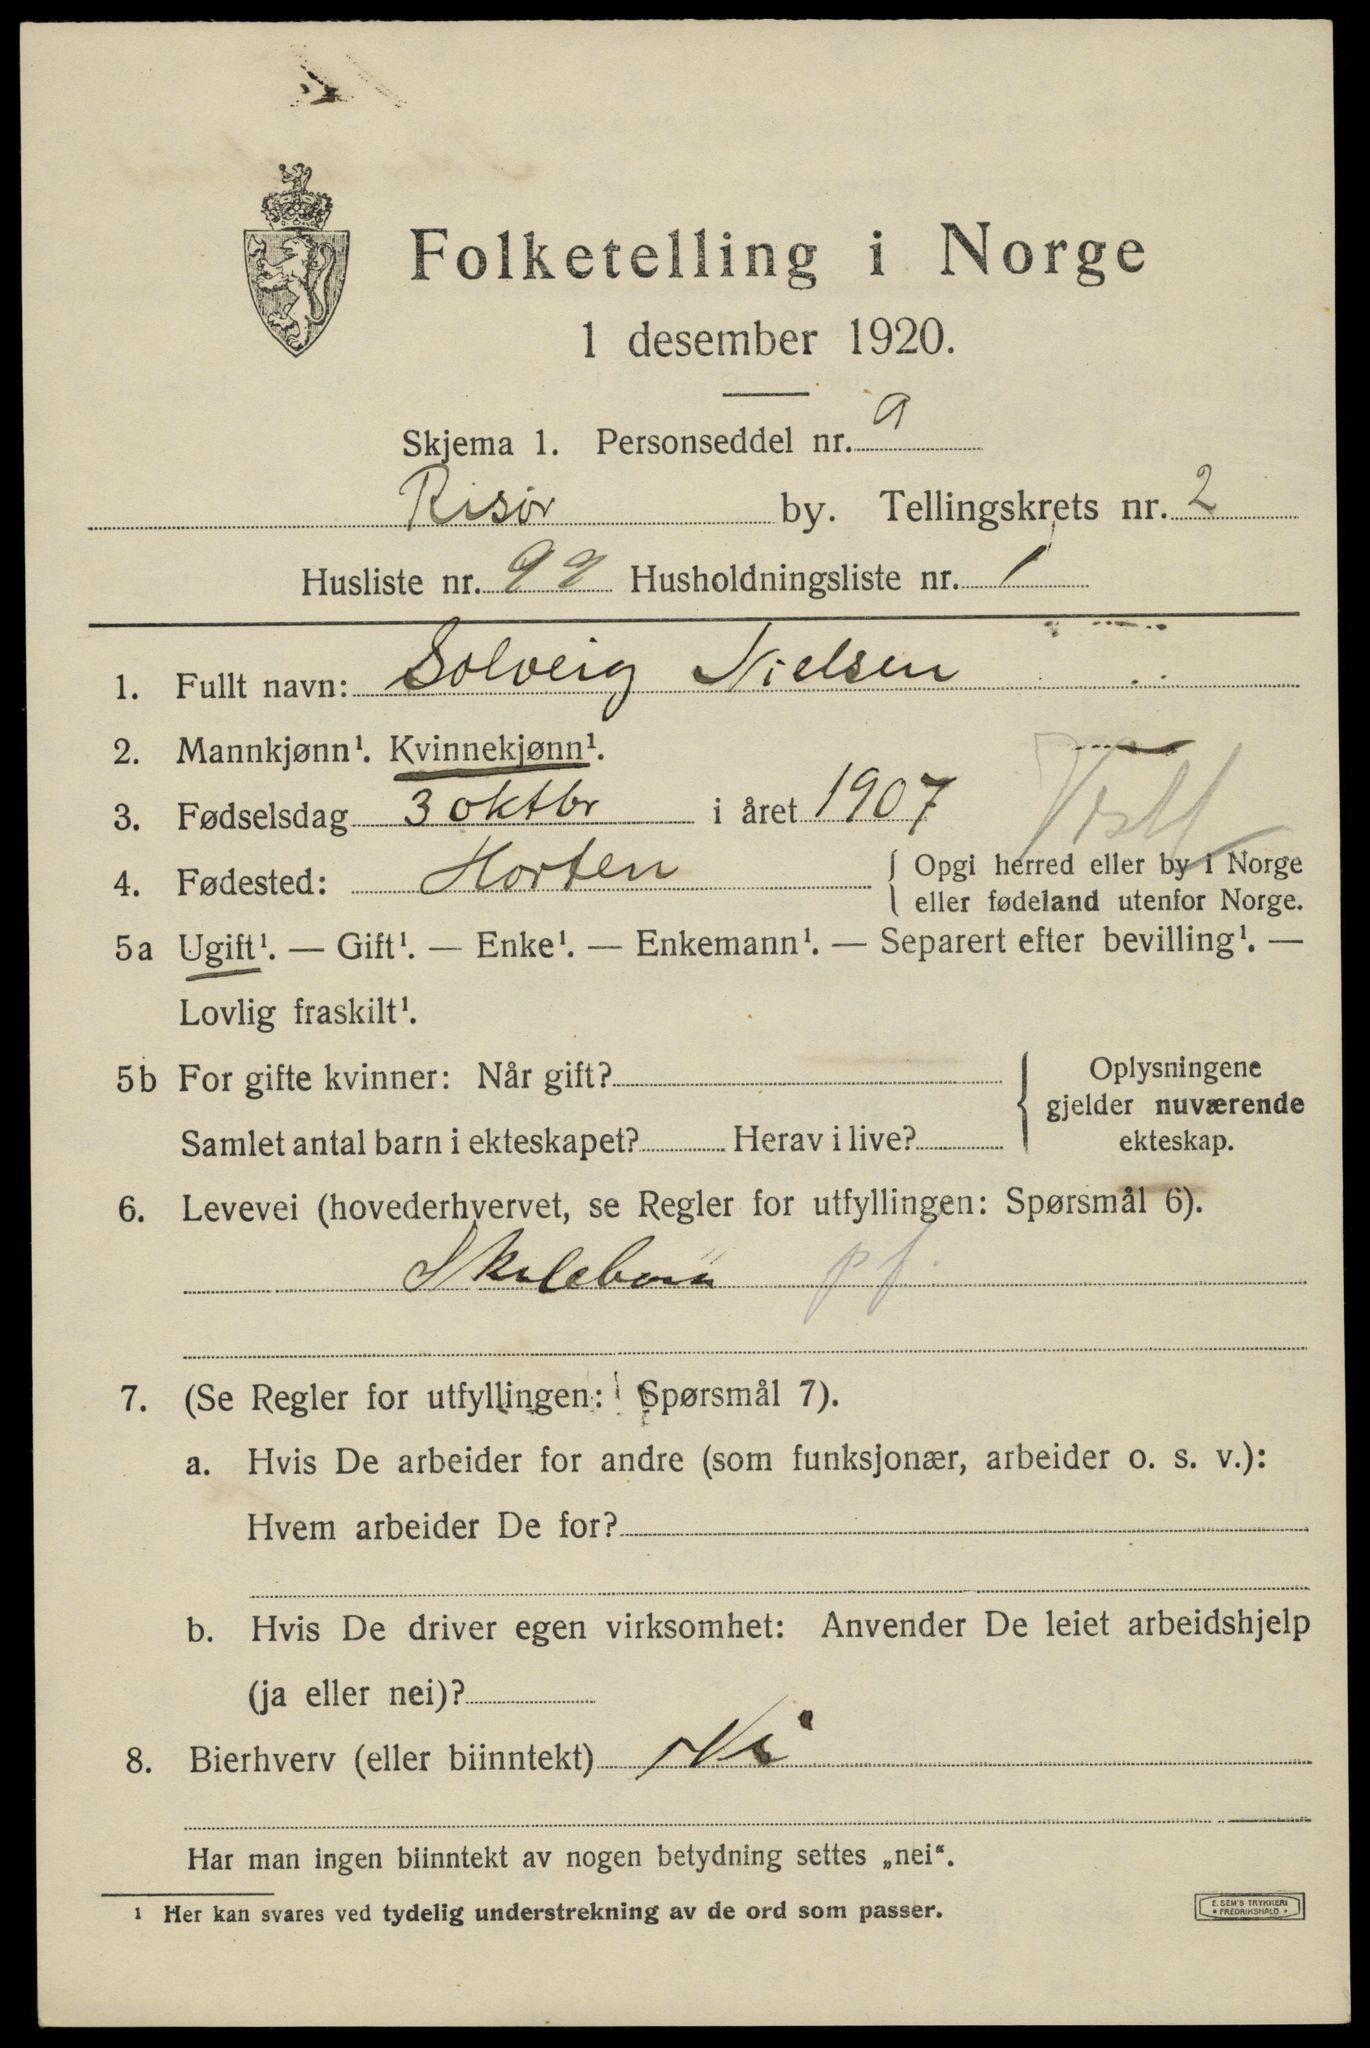 Folketelling i Norge
1 desember 1920.
Skjema 1. Personseddel nr. 9
Risør by. Tellingskrets nr. 2
Husliste nr. 99 Husholdningsliste nr. 1
1. Fullt navn: Solveig Nielsen
2. Mannkjønn¹. Kvinnekjønn¹.
3. Fødselsdag 3 oktbr i året 1907
4. Fødested: Horten { Opgi herred eller by i Norge
eller fødeland utenfor Norge.
5a Ugift¹. — Gift¹. — Enke¹. — Enkemann¹. — Separert efter bevilling¹. —
Lovlig fraskilt¹.
5b For gifte kvinner: Når gift? { Oplysningene
gjelder nuværende
Samlet antal barn i ekteskapet? Herav i live? ekteskap.
6. Levevei (hovederhvervet, se Regler for utfyllingen: Spørsmål 6).
Skolebarn pf.
7. (Se Regler for utfyllingen: Spørsmål 7).
a. Hvis De arbeider for andre (som funksjonær, arbeider o. s. v.):
Hvem arbeider De for?
b. Hvis De driver egen virksomhet: Anvender De leiet arbeidshjelp
(ja eller nei)?
8. Bierhverv (eller biinntekt) Nei
Har man ingen biinntekt av nogen betydning settes „nei“.
¹ Her kan svares ved tydelig understrekning av de ord som passer.
E. SEM'S TRYKKERI
FREDRIKSHALD